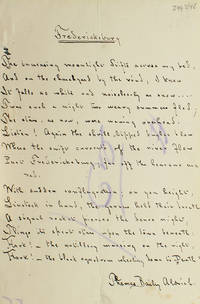 Fredericksburg
The increasing moonlight drifts across my bed,
And on the churchyard by the road, I know
It falls as white and noiselessly as snow....
'Twas such a night two weary summers fled;
The stars, as now, were waning overhead.
Listen! Again the shrill-lipped bugles blow
Where the swift currents of the river flow
Past Fredericksburg; far off the heavens are
red
With sudden conflagration; on yon height,
Linstock in hand, the gunners hold their breath;
A signal rocket pierces the dense night,
Flings its spent stars upon the town beneath:
Hark! — the artillery massing on the right,
Hark! — the black squadrons wheeling down to Death!
Thomas Bailey Aldrich.